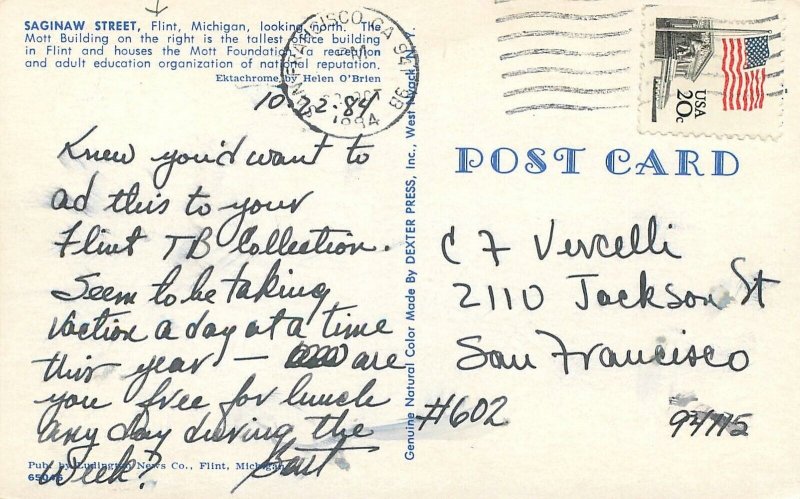 SAGINAW STREET, Flint, Michigan, looking north. The
Mott Building on the right is the tallest office building
in Flint and houses the Mott Foundation, a recreation
and adult education organization of national reputation.
Ektachrome by Helen O'Brien
SAN FRANCISCO, CA 941
PM
OCT
1984
USA
20c
10.22.84
Knew you'd want to
ad this to your
Flint TB Collection.
Seem to be taking
vaction a day at a time
this year — are
you free for lunch
any day during the
week? Bart
Pub. by Ludington News Co., Flint, Michigan
65046
Genuine Natural Color Made By DEXTER PRESS, Inc., West Nyack, N. Y.
POST CARD
C F Vercelli
2110 Jackson St
San Francisco
#602
94115